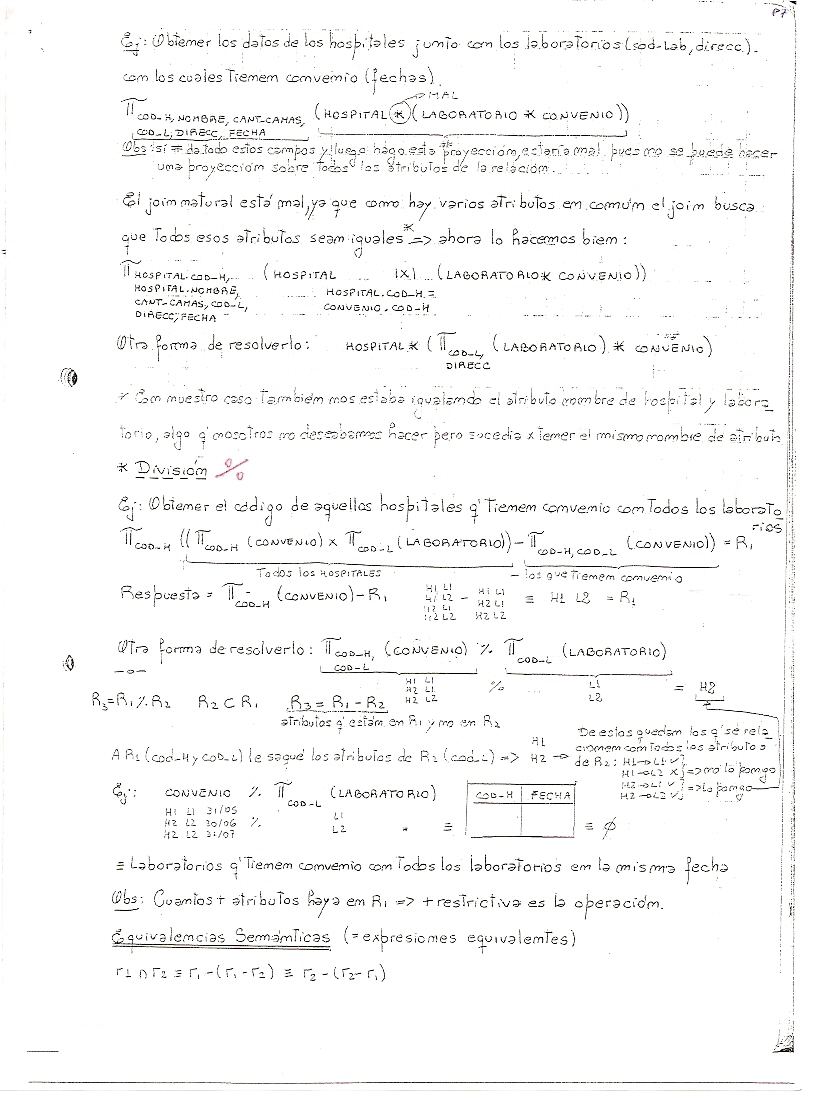 P7
Ej: Obtener los datos de los hospitales junto con los laboratorios (cod-Lab, direcc).
con los cuales tienen convenio (fechas).
MAL
π COD-H, NOMBRE, CANT-CAMAS, (HOSPITAL * (LABORATORIO * CONVENIO))
COD-L, DIRECC, FECHA
Obs: si = da todo estos campos y luego hago esta proyección, estaría mal, pues no se puede hacer
una proyección sobre todos los atributos de la relación.
El join natural está mal, ya que como hay varios atributos en común el join busca
que todos esos atributos sean iguales * => ahora lo hacemos bien:
π HOSPITAL.COD-H, (HOSPITAL |X| (LABORATORIO * CONVENIO))
HOSPITAL.NOMBRE, HOSPITAL.COD-H =
CANT-CAMAS, COD-L, CONVENIO.COD-H
DIRECC, FECHA
Otra forma de resolverlo: HOSPITAL * (π COD-L, (LABORATORIO) * CONVENIO)
DIRECC
* Con nuestro caso también nos estaba igualando el atributo nombre de hospital y labora
torio, algo q' nosotros no deseabamos hacer pero sucedia x tener el mismo nombre de atributo
* División %
Ej: Obtener el código de aquellos hospitales q' tienen convenio con todos los laborato
rios
π COD-H ((π COD-H (CONVENIO) x π COD-L (LABORATORIO)) - π COD-H, COD-L (CONVENIO)) = R1
Todos los HOSPITALES - los que tienen convenio
Respuesta = π COD-H (CONVENIO) - R1 H1 L1 - H1 L1 ≡ H1 L2 = R1
H1 L2 H2 L1
H2 L1 H2 L2
H2 L2
Otra forma de resolverlo: π COD-H, (CONVENIO) % π COD-L (LABORATORIO)
COD-L
H1 L1 % L1 = H2
H2 L1 L2
H2 L2
R3=R1%R2 R2 ⊂ R1 R3 = R1 - R2
atributos q' están en R1 y no en R2
A R1 (cod-H y cod-L) le saqué los atributos de R2 (cod-L) => H1
H2 →
De estos quedan los q' se rela
cionen con todos los atributos
de R2: H1→L1 ✓
H1→L2 X => no lo pongo
H2→L1 ✓
H2→L2 ✓ => lo pongo
Ej: CONVENIO % π COD-L (LABORATORIO) ≡ COD-H FECHA ≡ ∅
H1 L1 31/05 L1
H2 L2 30/06 % L2
H2 L2 31/07
≡ Laboratorios q' tienen convenio con todos los laboratorios en la misma fecha
Obs: Cuantos + atributos haya en R1 => + restrictiva es la operación.
Equivalencias Semánticas (= expresiones equivalentes)
r1 ∩ r2 ≡ r1 - (r1 - r2) ≡ r2 - (r2 - r1)